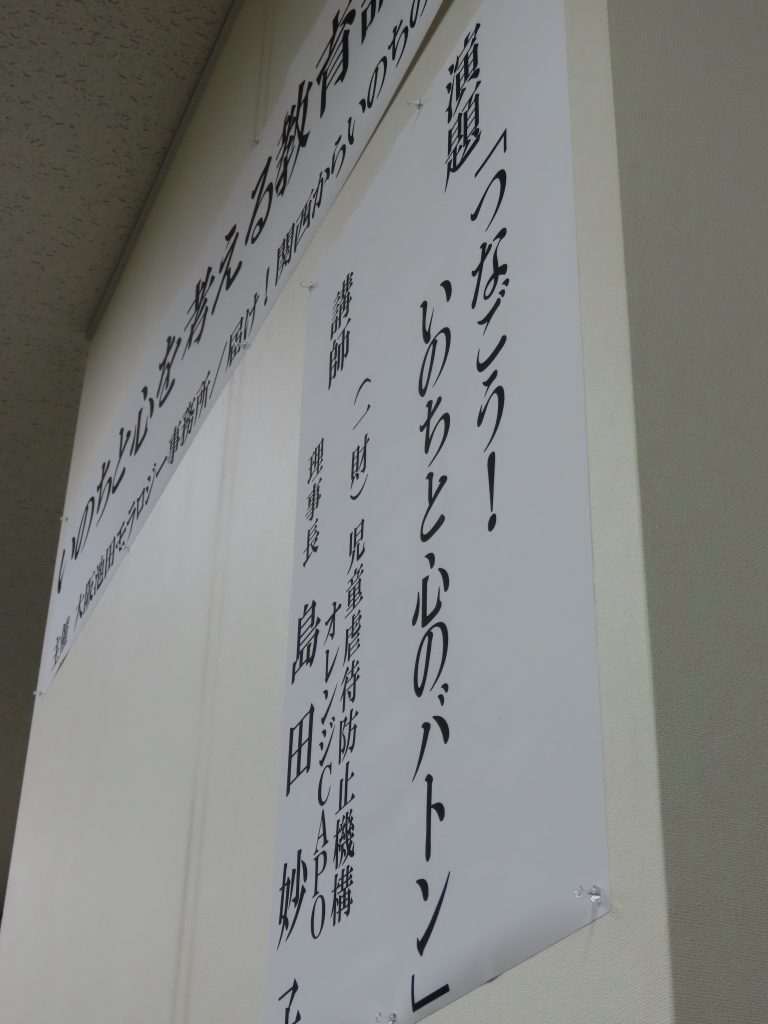 いのちと心を考える教育
主催 大阪池田モラロジー事務所／届け！関西からいのちの
演題「つなごう！
いのちと心のバトン」
講師 （一財）児童虐待防止機構
オレンジCAPO
理事長 島田妙子